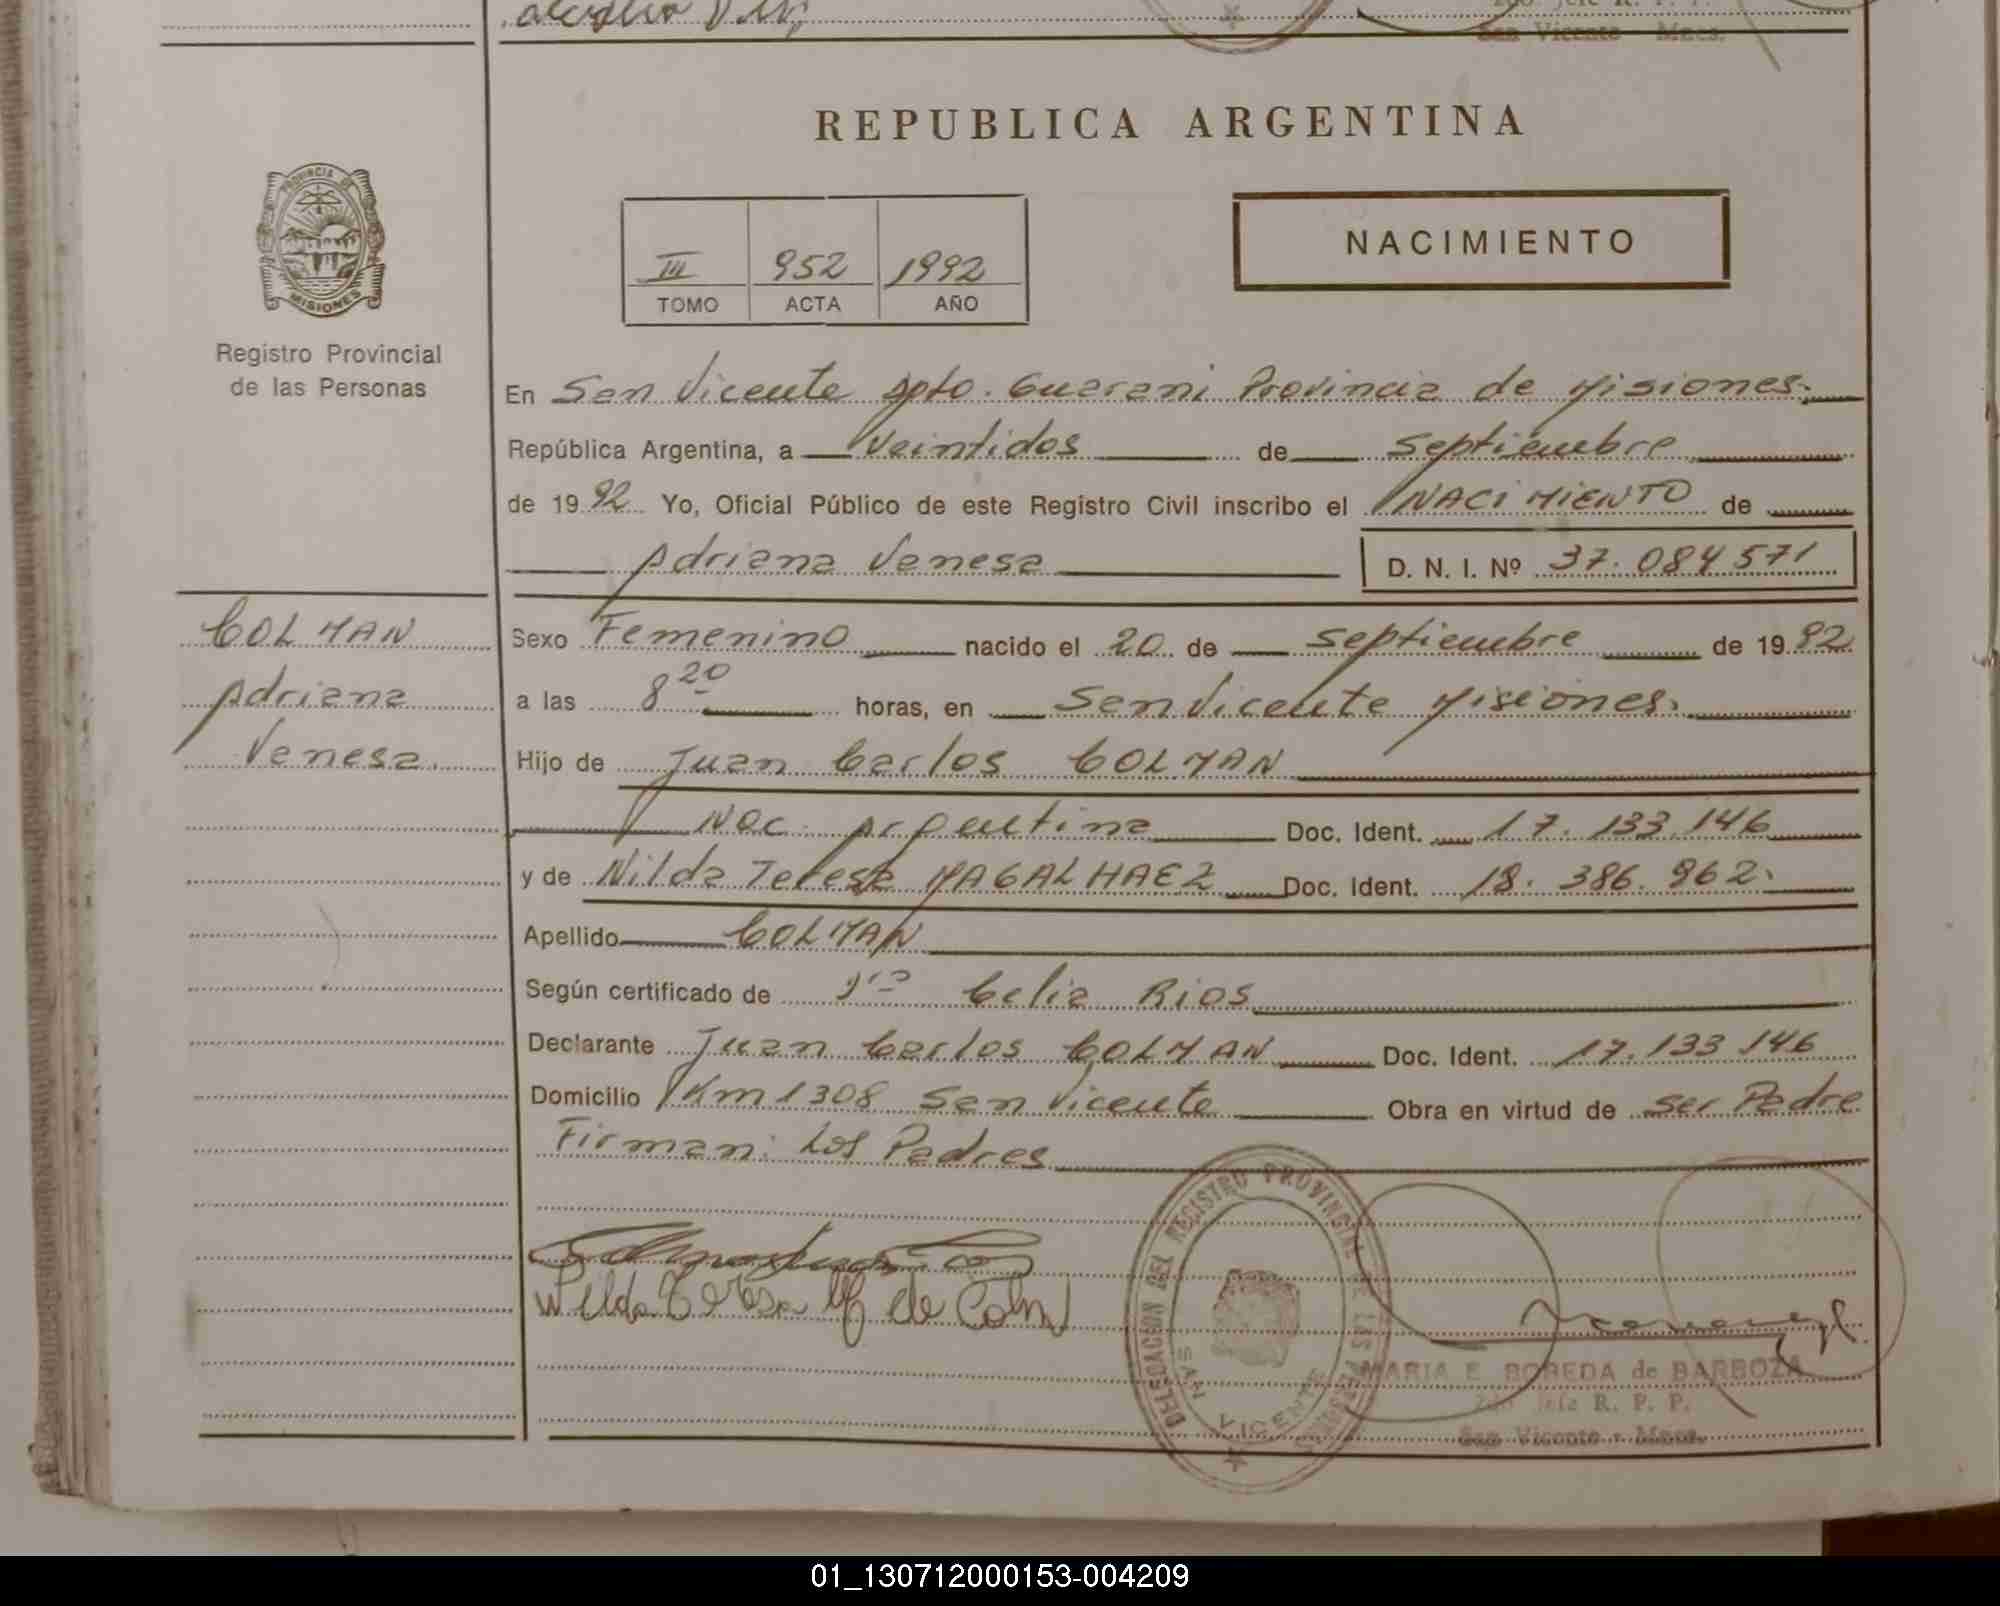 San Vicente Mnes.
REPUBLICA ARGENTINA
PROVINCIA DE
MISIONES
Registro Provincial
de las Personas
NACIMIENTO
III 952 1992
TOMO ACTA AÑO
En San Vicente Dpto. Guarani Provincia de Misiones.
República Argentina, a Veintidos de Septiembre
de 1992 Yo, Oficial Público de este Registro Civil inscribo el NACIMIENTO de
Adriana Vanesa D. N. I. Nº 37.084571
COLMAN
Adriana
Vanesa.
Sexo Femenino nacido el 20 de Septiembre de 1992
a las 8 20 horas, en San Vicente Misiones.
Hijo de Juan Carlos COLMAN
Nac. Argentina Doc. Ident. 17.133.146
y de Nilda Teresa MAGALHAEZ Doc. Ident. 18.386.962.
Apellido COLMAN
Según certificado de Celia Rios
Declarante Juan Carlos COLMAN Doc. Ident. 17.133.146
Domicilio Km 1308 San Vicente Obra en virtud de ser Padre
Firman: Los Padres
DELEGACION DEL REGISTRO PROVINCIAL DE LAS PERSONAS
SAN VICENTE
MARIA E. BOBEDA de BARBOZA
2do Jefe R. P. P.
San Vicente - Mnes.
01_130712000153-004209